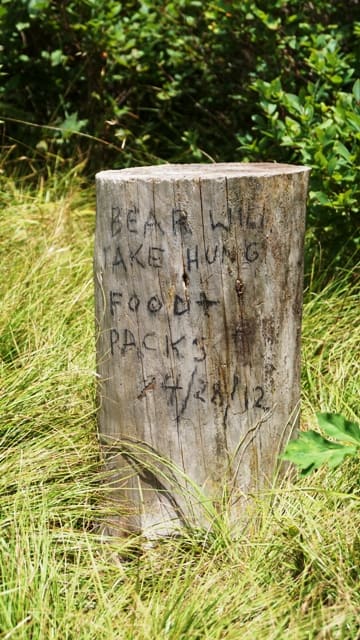 BEAR WILL
TAKE HUNG
FOOD +
PACKS